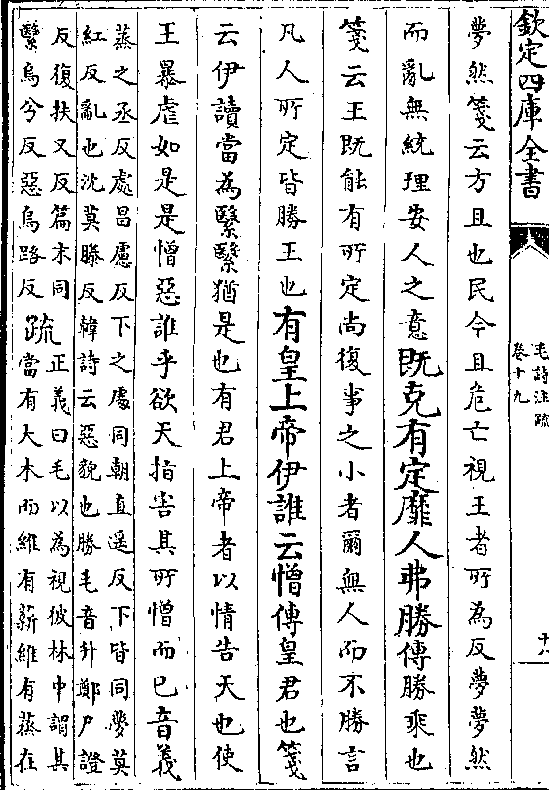 欽定四庫全書
毛詩注疏
卷十九
十八
夢然箋云方且也民今且危亡視王者所為反夢夢然
而亂無統理安人之意既克有定靡人弗勝傳勝乘也
箋云王既能有所定尚復事之小者爾無人而不勝言
凡人所定皆勝王也有皇上帝伊誰云憎傳皇君也箋
云伊讀當為繄繄猶是也有君上帝者以情告天也使
王暴虐如是是憎惡誰乎欲天指害其所憎而已音義
蒸之丞反處昌慮反下之處同朝直遥反下皆同夢莫
紅反亂也沈莫滕反韓詩云惡貌也勝毛音升鄭尸證
反復扶又反篇末同
繄烏兮反惡烏路反
疏
正義曰毛以為視彼林中謂其
當有大木而維有薪維有蒸在